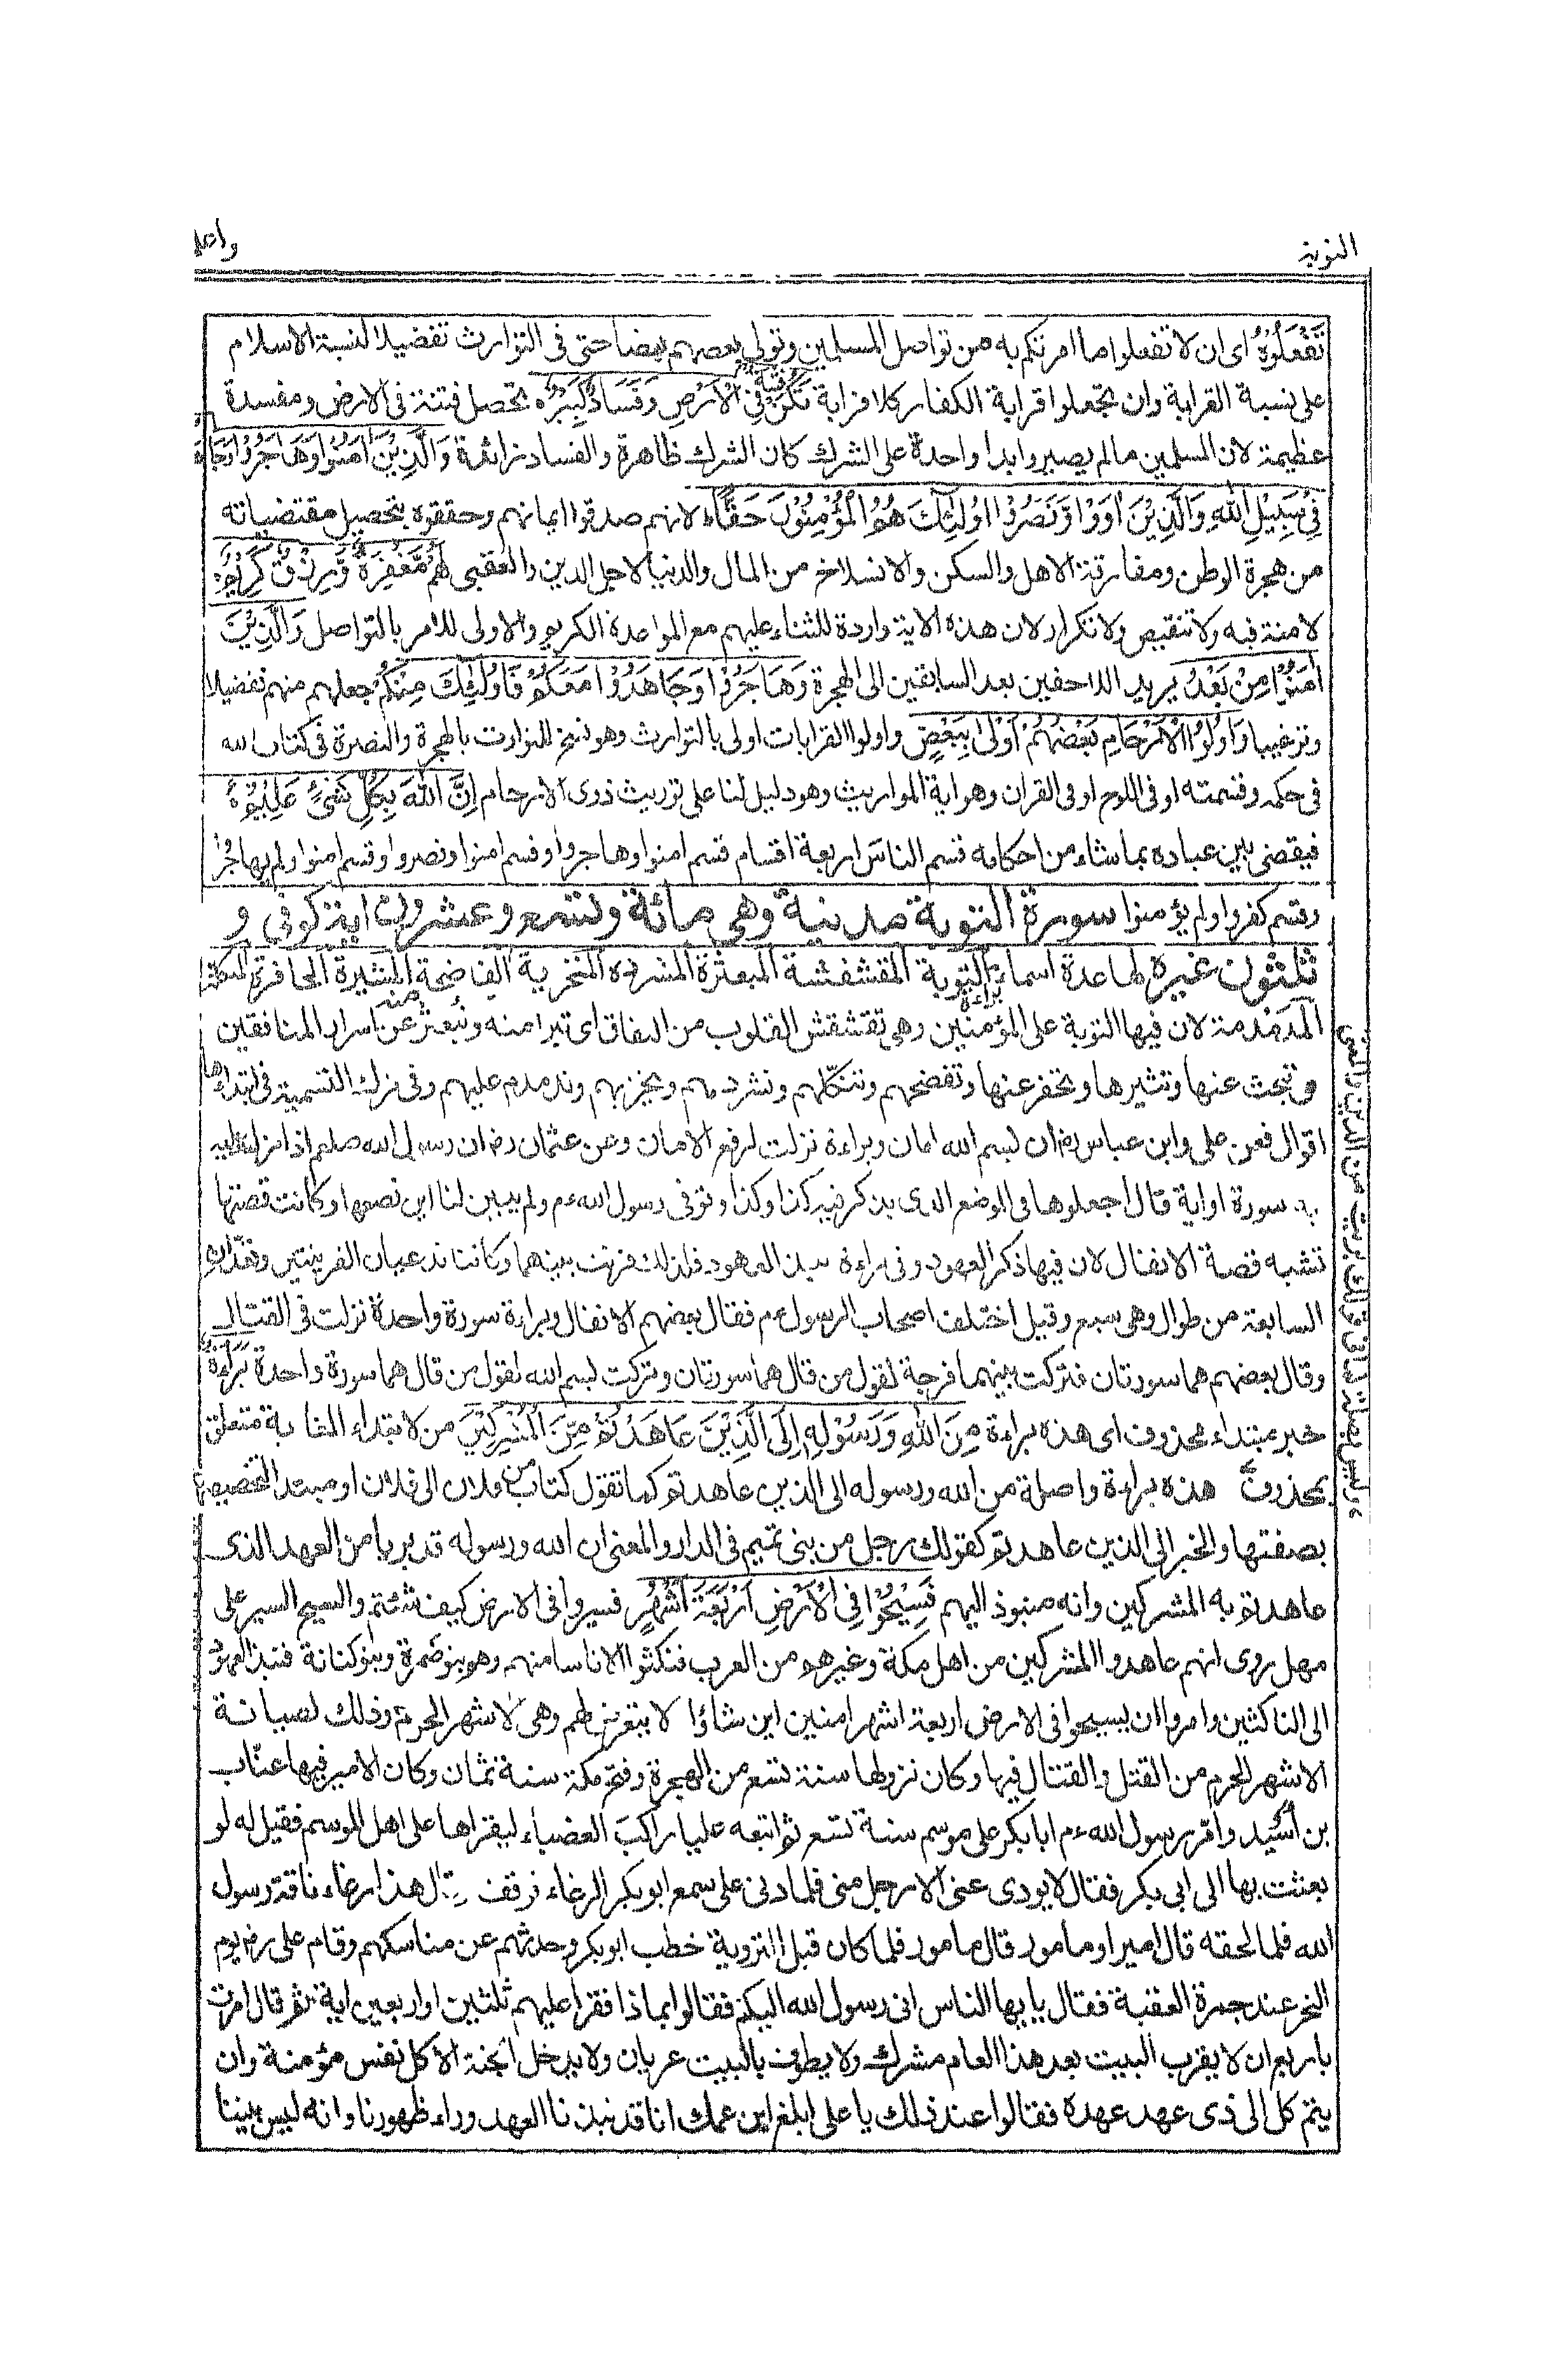 التوبة
واعلموا
تَفْعَلُوْهُ اى ان لا تفعلوا ما امرتكم به من تواصل المسلمين وتولى بعضهم بعضا حتى فى التوارث تفضيلا لنسبة الاسلام
على نسبة القرابة وان تجعلوا قرابة الكفار كلا قرابة تَكُنْ فِتْنَةٌ فِى الْاَرْضِ وَفَسَادٌ كَبِيْرٌ تحصل فتنة فى الارض ومفسدة
عظيمة لان المسلمين مالم يصيروا يدا واحدة على الشرك كان الشرك ظاهرة والفساد زائدة وَالَّذِيْنَ اٰمَنُوْا وَهَاجَرُوْا وَجَاهَدُوْا
فِىْ سَبِيْلِ اللهِ وَالَّذِيْنَ اٰوَوْا وَّنَصَرُوْا اُولٰئِكَ هُمُ الْمُؤْمِنُوْنَ حَقًّا لانهم صدقوا ايمانهم وحققوه بتحصيل مقتضياته
من هجرة الوطن ومفارقة الاهل والسكن والانسلاخ من المال والدنيا لاجل الدين والعقبى لَهُمْ مَّغْفِرَةٌ وَّرِزْقٌ كَرِيْمٌ
لا منة فيه ولا تنقيص ولا تكرار لان هذه الاية واردة للثناء عليهم مع المواعدة الكريم والاولى للامر بالتواصل وَالَّذِيْنَ
اٰمَنُوْا مِنْ بَعْدُ يريد اللاحقين بعد السابقين الى الهجرة وَهَاجَرُوْا وَجَاهَدُوْا مَعَكُمْ فَاُولٰئِكَ مِنْكُمْ جعلهم منهم تفضيلا
وترغيبا وَاُولُوا الْاَرْحَامِ بَعْضُهُمْ اَوْلٰى بِبَعْضٍ واولوا القرابات اولى بالتوارث وهو نسخ للتوارث بالهجرة والنصرة فى كتاب الله
فى حكمه وقسمته او فى اللوح او فى القران وهو اية المواريث وهو دليل لنا على توريث ذوى الارحام اِنَّ اللهَ بِكُلِّ شَىْءٍ عَلِيْمٌ
فيقضى بين عباده بما شاء من احكامه قسم الناس اربعة اقسام قسم امنوا وهاجروا وقسم امنوا ونصروا وقسم امنوا ولم يهاجروا
وقسم كفروا ولم يؤمنوا سورة التوبة مدنية وهى مائة وتسع وعشرون اية كوفى و
ثلثون غيره لها عدة اسماء براءة التوبة المقشقشة المبعثرة المشردة المخزية الفاضحة المثيرة الحافرة المنكلة
المدمدمة لان فيها التوبة على المؤمنين وهى تقشقش القلوب من النفاق اى تبرا منه وتبعثر عن اسرار المنافقين
وتبحث عنها وتثيرها وتحفر عنها وتفضحهم وتنكلهم وتشرد بهم وتخزيهم وتدمدم عليهم وفى ترك التسمية فى ابتداءها
اقوال فعن على وابن عباس رض ان بسم الله امان وبراءة نزلت لرفع الامان وعن عثمان رض ان رسول الله صلعم اذا نزلت عليه
سورة او اية قال اجعلوها فى الموضع الذى يذكر فيه كذا وكذا وتوفى رسول الله ءم ولم يبين لنا اين نضعها وكانت قصتها
تشبه قصة الانفال لان فيها ذكر العهود وفى براءة نبذ العهود فلذلك قرنت بينهما وكانتا تدعيان القرينتين وتعدان
السابعة من طوال وهى سبع وقيل اختلف اصحاب الرسول ءم فقال بعضهم الانفال وبراءة سورة واحدة نزلت فى القتال
وقال بعضهم هما سورتان فتركت بينهما فرجة لقول من قال هما سورتان وتركت بسم الله لقول من قال هما سورة واحدة بَرَاءَةٌ
خبر مبتداء محذوف اى هذه براءة مِنَ اللهِ وَرَسُوْلِهٖ اِلَى الَّذِيْنَ عَاهَدْتُمْ مِّنَ الْمُشْرِكِيْنَ من لابتداء الغاية متعلق
بمحذوف هذه براءة واصلة من الله ورسوله الى الذين عاهدتم كما تقول كتاب من فلان الى فلان او مبتدا لتخصيصها
بصفتها والخبر الى الذين عاهدتم كقولك رجل من بنى تميم فى الدار والمعنى ان الله ورسوله قد بريا من العهد الذى
عاهدتم به المشركين وانه منبوذ اليهم فَسِيْحُوْا فِى الْاَرْضِ اَرْبَعَةَ اَشْهُرٍ فسيروا فى الارض كيف شئتم والسيح السير على
مهل روى انهم عاهدوا المشركين من اهل مكة وغيرهم من العرب فنكثوا الا ناسا منهم وهم بنو ضمرة وبنو كنانة فنبذ العهد
الى الناكثين وامروا ان يسيحوا فى الارض اربعة اشهر امنين اين شاؤا لا يتعرض لهم وهى الاشهر الحرم وذلك لصيانة
الاشهر الحرم من القتل والقتال فيها وكان نزولها سنة تسع من الهجرة وفتح مكة سنة ثمان وكان الامير فيها عتاب
بن اُسيد وامر رسول الله ءم ابا بكر على موسم سنة تسع ثم اتبعه عليا راكبَ العضباء ليقراها على اهل الموسم فقيل له لو
بعثت بها الى ابى بكر فقال لا يودى عنى الا رجل منى فلما دنى على سمع ابو بكر الرغاء فوقف وقال هذا رغاء ناقة رسول
الله فلما لحقه قال امير او مأمور قال مامور فلما كان قبل التروية خطب ابو بكر وحدثهم عن مناسكهم وقام على رض يوم
النحر عند جمرة العقبة فقال يايها الناس انى رسول رسول الله اليكم فقالوا بماذا فقرا عليهم ثلثين او اربعين اية ثم قال امرت
باربع ان لا يقرب البيت بعد هذا العام مشرك ولا يطوف بالبيت عريان ولا يدخل الجنة الا كل نفس مؤمنة وان
يتم كل الى ذى عهد عهده فقالوا عند ذلك يا على ابلغ ابن عمك انا قد نبذنا العهد وراء ظهورنا وانه ليس بيننا